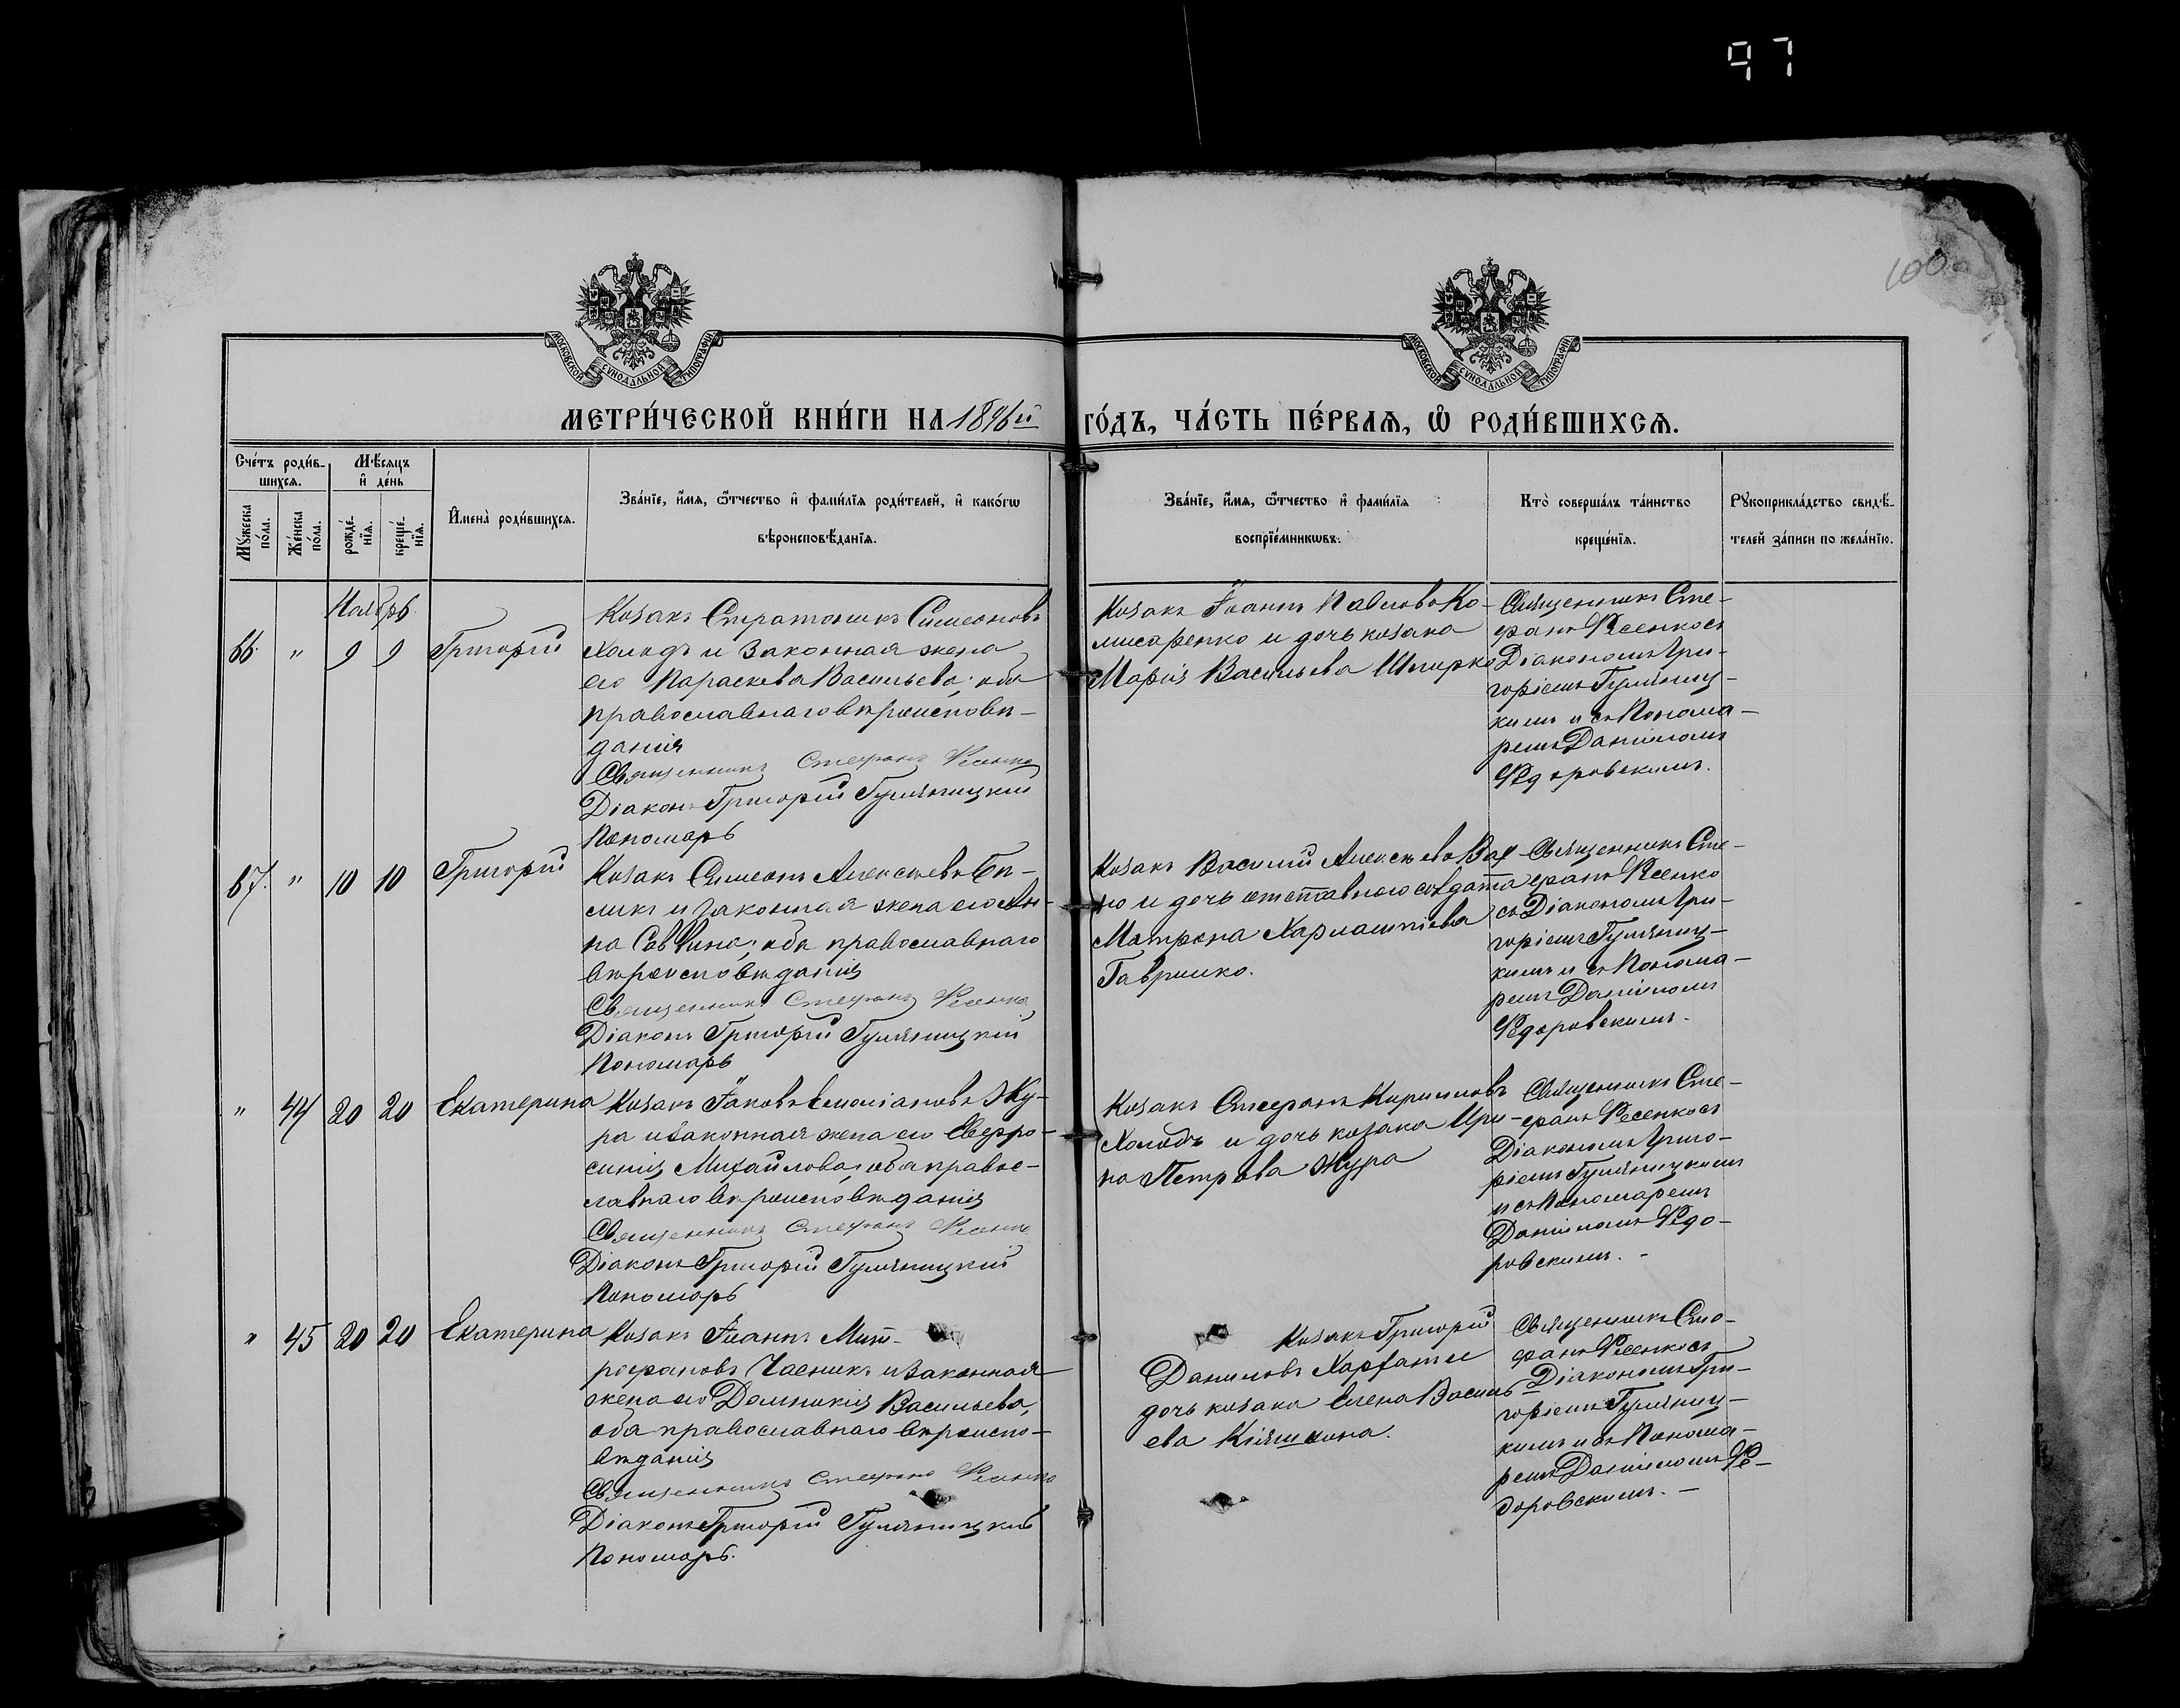 97
100
МОСКОВСКОЙ СѴНОДАЛЬНОЙ ТИПОГРАФІИ
МОСКОВСКОЙ СѴНОДАЛЬНОЙ ТИПОГРАФІИ
МЕТРИ́ЧЕСКОЙ КНИ́ГИ НА 1896й ГО́ДЪ, ЧА́СТЬ ПЕ́РВАѦ, Ѽ РОДИ́ВШИХСѦ.
Сче́тъ роди́в-
шихсѧ.
Мѣ́сѧцъ
и҆ де́нь
Мꙋ́жеска
по́ла.
Же́нска
по́ла.
рожде́-
нїѧ.
креще́-
нїѧ.
И҆мена̀ роди́вшихсѧ.
Зва́нїе, и҆́мѧ, ѻ҆́тчество и҆ фами́лїѧ роди́телей, и҆ како́гѡ
вѣроисповѣ́данїѧ.
Зва́нїе, и҆́мѧ, ѻ҆́тчество и҆ фами́лїѧ
воспрїе́мникѡвъ.
Кто̀ соверша́лъ та́инство
креще́нїѧ.
Рꙋкоприкла́дство свидѣ́-
телей за́писи по жела́нїю.
Ноябрь.
66. " 9 9 Григорій
Козакъ Стратоникъ Симеоновъ
Холодъ и законная жена
его Параскева Васильева; оба
православнаго вѣроисповѣ-
данія
Священникъ Стефанъ Фесенко
Діаконъ Григорій Гуляницкій
Пономарь
Козакъ Іоаннъ Павловъ Ко-
мисаренко и дочь козака
Марія Васильева Шпирко
Священникъ Сте-
фанъ Фесенко съ
Діакономъ Гри-
горіемъ Гуляниц-
кимъ и съ Понома-
ремъ Даніиломъ
Федоровскимъ.
67. " 10 10 Григорій
Козакъ Симеонъ Алексѣевъ Бѣ-
ликъ и законная жена его Ан-
на Саввина; оба православнаго
вѣроисповѣданія
Священникъ Стефанъ Фесенко
Діаконъ Григорій Гуляницкій
Пономарь
Козакъ Василій Алексѣевъ
но и дочь отставнаго солдата
Матрона Харлампіева
Гаврилко.
Священникъ Сте-
фанъ Фесенко
съ Діакономъ Гри-
горіемъ Гуляниц-
кимъ и съ Понома-
ремъ Даніиломъ
Федоровскимъ.
" 44 20 20 Екатерина
Козакъ Іаковъ Емеліановъ Жу-
ра и законная жена его Евфро-
синія Михайлова, оба право-
славнаго вѣроисповѣданія
Священникъ Стефанъ Фесенко
Діаконъ Григорій Гуляницкій
Пономарь
Козакъ Стефанъ Кирилловъ
Холодъ и дочь козака Ири-
на Петрова Жура
Священникъ Сте-
фанъ Фесенко съ
Діакономъ Григо-
ріемъ Гуляницкимъ
и съ Пономаремъ
Даніиломъ Федо-
ровскимъ. -
" 45 20 20 Екатерина
Козакъ Іоаннъ Мит-
рофановъ Часникъ и законная
жена его Домникія Васильева,
оба православнаго вѣроиспо-
вѣданія
Священникъ Стефанъ Фесенко
Діаконъ Григорій Гуляницкій
Пономарь.
Козакъ Григорій
Даниловъ и
дочь козака Елена Василь-
ева
Священникъ Сте-
фанъ Фесенко съ
Діакономъ Гри-
горіемъ Гуляниц-
кимъ и съ Понома-
ремъ Даніиломъ Фе-
доровскимъ. -